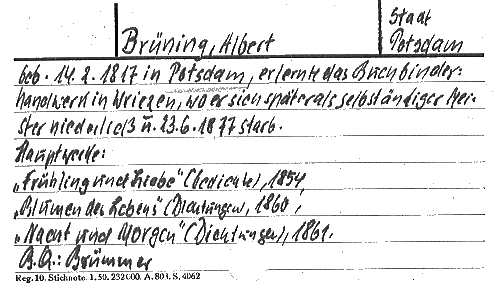 Stadt
Potsdam
Brüning, Albert
geb. 14.2.1817 in Potsdam, erlernte das Buchbinder=
handwerk in Wriezen, wo er sich später als selbständiger Mei-
ster niederließ u. 23.6.1877 starb.
Hauptwerke:
„Frühling und Liebe" (Gedichte), 1854,
„Blumen des Lebens" (Dichtungen, 1860,
„Nacht und Morgen" (Dichtungen), 1861.
B.Q.: Brümmer
Reg. 10. Stichnote. 1. 50. 232000. A. 803. S. 4062